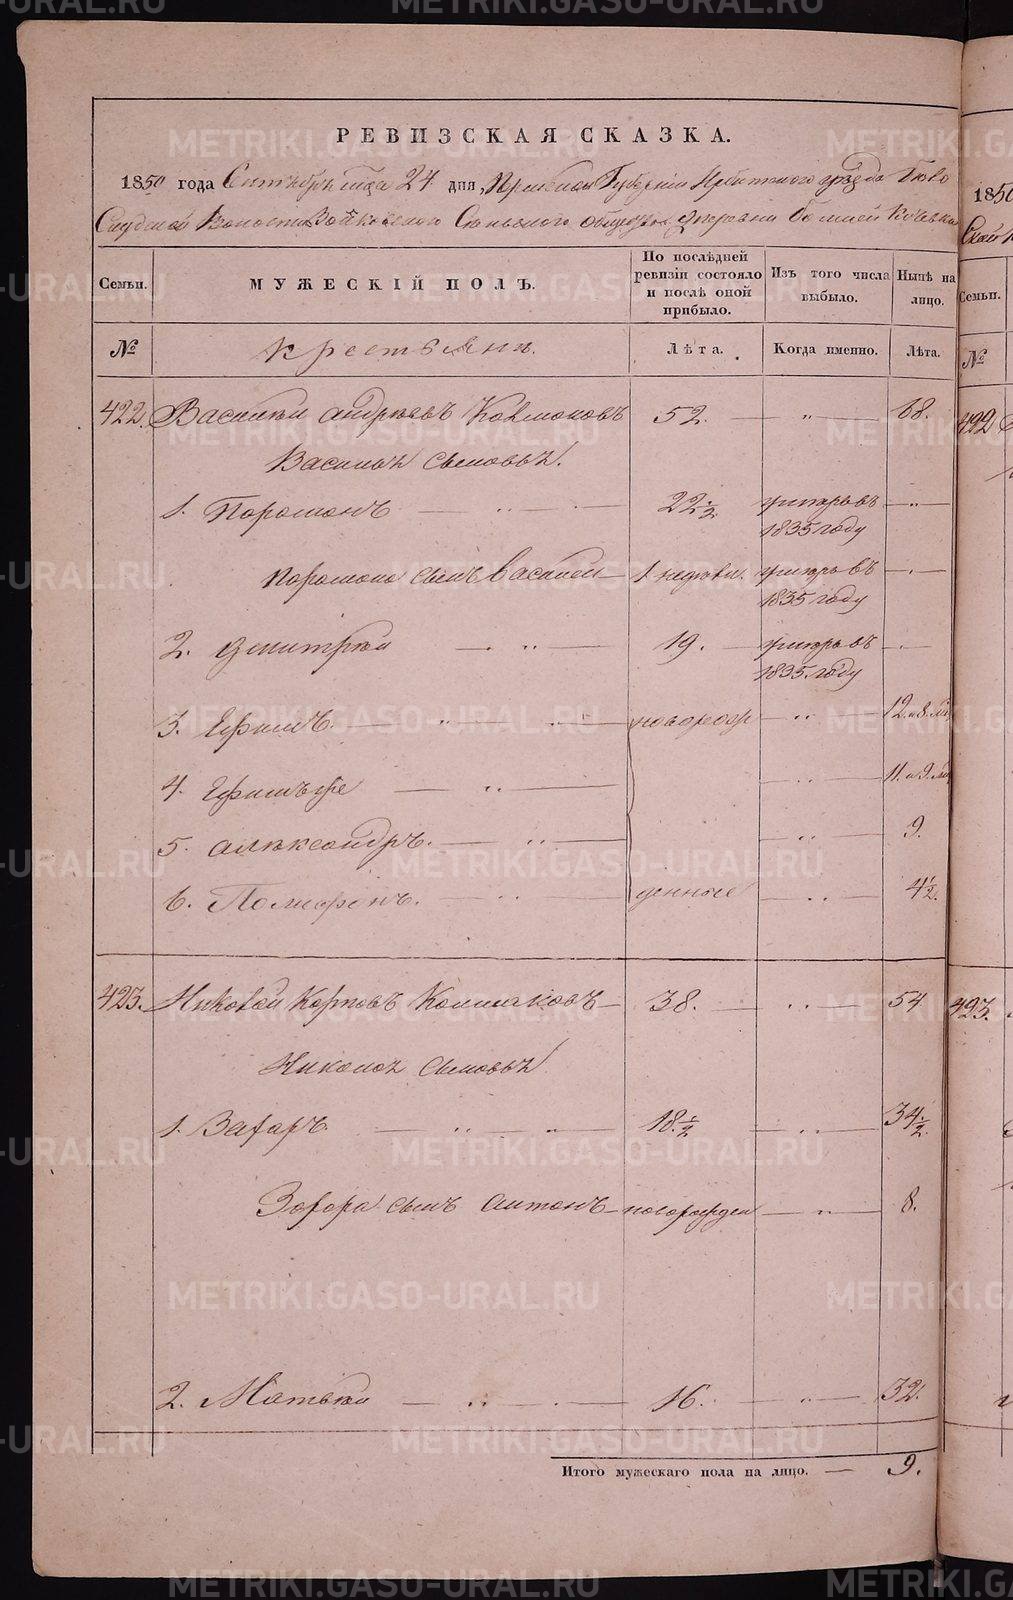 РЕВИЗСКАЯ СКАЗКА.
1850 года Сентября 24 дня, Пермской Губерніи Ирбитского уѣзда Бѣло
Слудской Волости Сельского общества деревни Большей
Семьи. МУЖЕСКІЙ ПОЛЪ. По послѣдней ревизіи состояло и послѣ оной прибыло. Изъ того числа выбыло. Нынѣ на лицо.
№ Крестьянъ. Лѣта. Когда именно. Лѣта.
422. Василей Андреевъ 52. — „ — 68.
Васильи сыновья.
1. Парамонъ — „ — 22 1/2 умеръ въ 1835 году — „ —
Парамона сынъ Василей — 1 недѣли. умеръ въ 1835 году — „ —
2. Дмитрей — „ — 19. умеръ въ 1835 году — „ —
3. Ефимъ. — „ — „ — новорож — „ — 12. и 8. мѣ
4. Ефимъ же — „ — — „ — 11. и 9. мѣ
5. Александръ. — „ — — „ — 9.
6. — „ — денные — „ — 4 1/2.
423. Николай Карповъ 38. — „ — 54
Николая сыновья
1. Захаръ. — „ — „ — 18. 1/2 — „ — 34 1/2.
Захара сынъ Антонъ — новорожден — „ — 8.
2. Матвей — „ — 16. — „ — 32.
Итого мужескаго пола на лицо. — 9.
1850
Семьи.
№
422
423.
METRIKI.GASO-URAL.RU